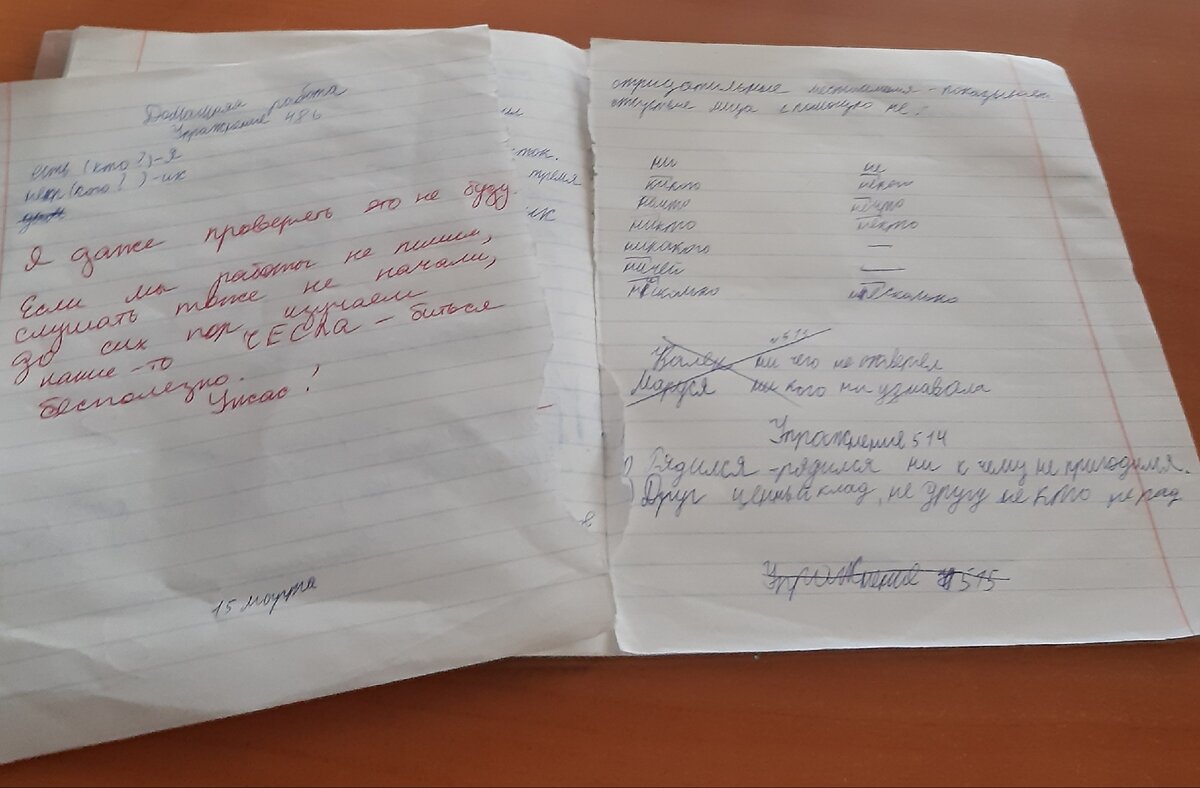 Домашняя работа
Упражнение 486
есть (кто?)-я
(кого?)-их
Я даже проверять это не буду.
Если мы работы не пишем,
слушать тоже не начали,
до сих пор изучаем
какие-то ЧЕСЛА - биться
бесполезно.
Ужас!
15 марта
ток.
тремя
ик
отрицательные - показывают
лица с помощью не.
ни
не
никого
некого
ничто
нечто
никто
некто
никакого
—
ничей
—
нисколько
несколько
ни чего не
Маруся ни кого ни узнавала
Упражнение 514
Рядился - рядился ни к чему не пригодился.
Друг ценный клад, не другу не кто не рад
Упражнение 515